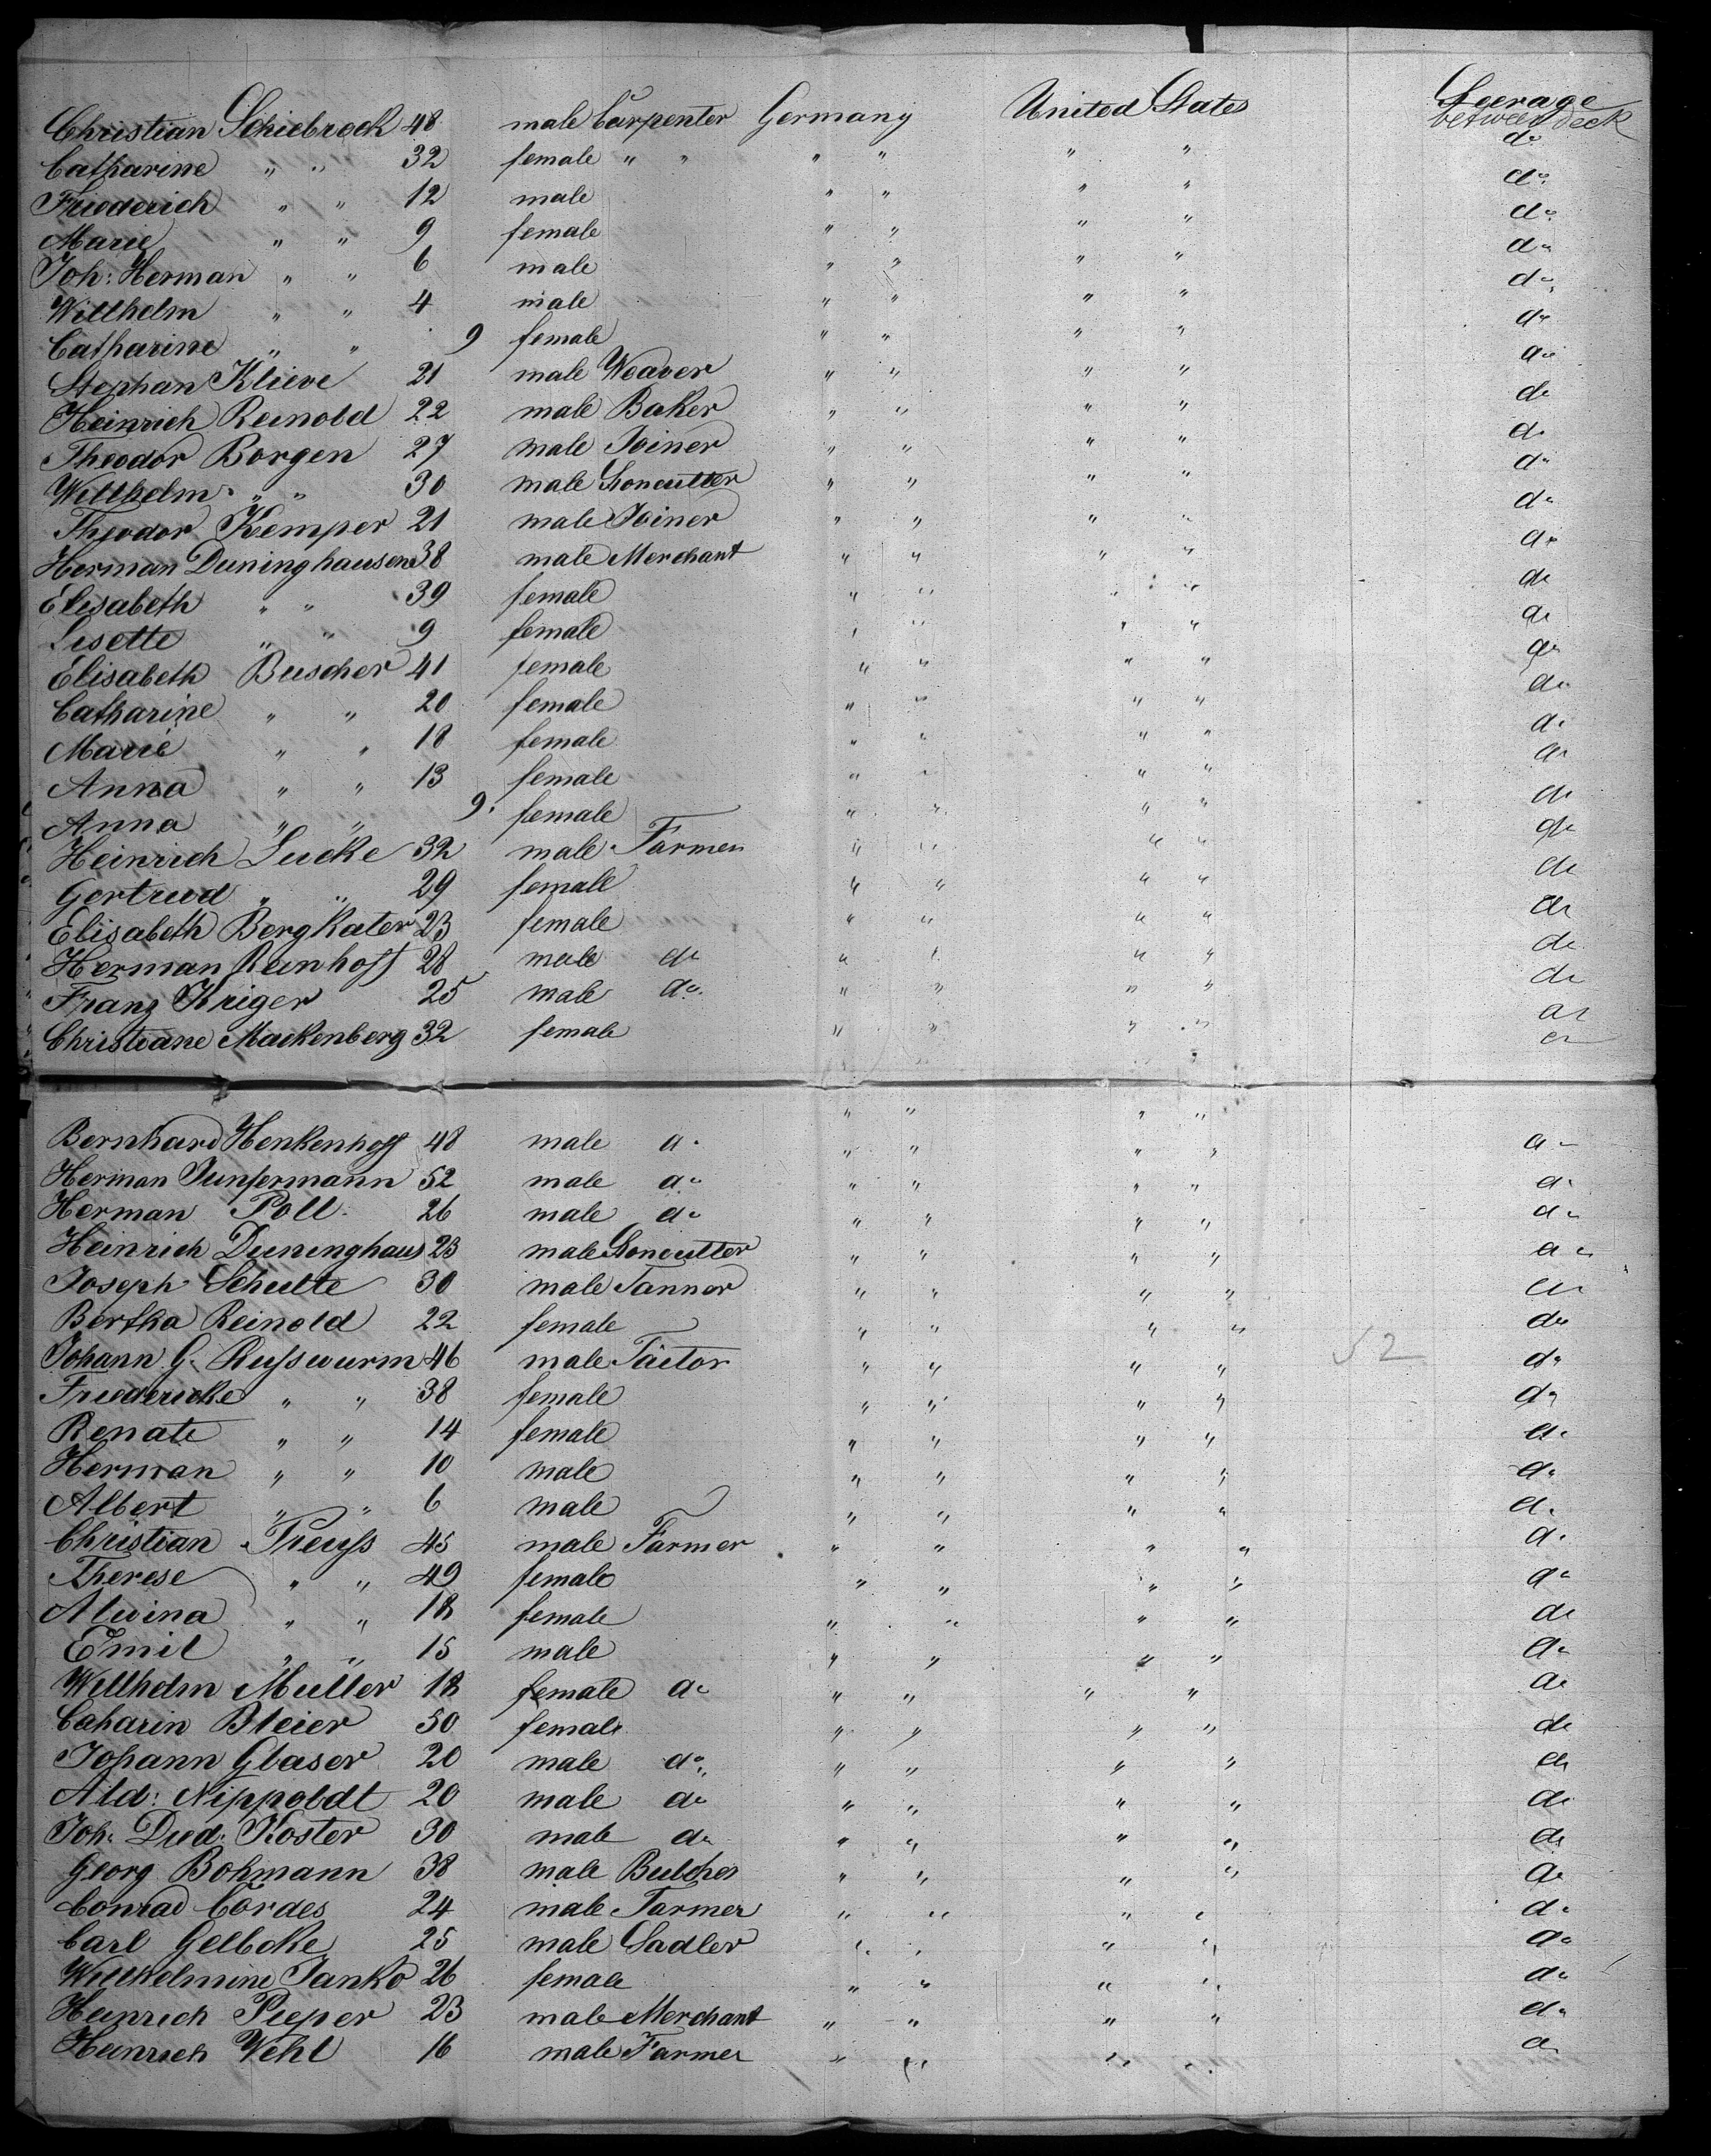 Christian Schiebrock 48 male Carpenter Germany United States Steerage between deck
Catharine " " 32 female " " " " " " do
Friederich " " 12 male " " " " do
Marie " " 9 female " " " " do
Joh: Herman " " 6 male " " " " do
Willhelm " " 4 male " " " " do
Catharine " " 9 female " " " " do
Stephan Klieve 21 male Weaver " " " " do
Heinrich Reinold 22 male Baker " " " " do
Theodor Borgen 27 male Joiner " " " " do
Willhelm " " 30 male Stoncutter " " " " do
Theodor Kemper 21 male Joiner " " " " do
Herman Duninghausen 38 male Merchant " " " " do
Elisabeth " " 39 female " " " " do
Lisette " " 9 female " " " " do
Elisabeth Buscher 41 female " " " " do
Catharine " " 20 female " " " " do
Marie " " 18 female " " " " do
Anna " " 13 female " " " " do
Anna " " 9 female " " " " do
Heinrich Lucke 32 male Farmer " " " " do
Gertrud " " 29 female " " " " do
Elisabeth Bergkater 23 female " " " " do
Herman Reinhoff 28 male do " " " " do
Franz Kriger 25 male do " " " " do
Christiane Mackenberg 32 female " " " " do
Bernhard Henkenhoff 48 male do " " " " do
Herman Junfermann 52 male do " " " " do
Herman Poll 26 male do " " " " do
Heinrich Duninghaus 23 male Stoncutter " " " " do
Joseph Schulte 30 male Tanner " " " " do
Bertha Reinold 22 female " " " " do
Johann G. Russwurm 46 male " " " " 52 do
Friedericke " " 38 female " " " " do
Renate " " 14 female " " " " do
Herman " " 10 male " " " " do
Albert " " 6 male " " " " do
Christian Treuss 45 male Farmer " " " " do
Therese " " 49 female " " " " do
Alwina " " 18 female " " " " do
Emil " " 15 male " " " " do
Willhelm Muller 18 female do " " " " do
Caharin Bleier 50 female " " " " do
Johann Glaser 20 male do " " " " do
Ald: Nippoldt 20 male do " " " " do
Joh. Died. Koster 30 male do " " " " do
Georg Bohmann 38 male Butcher " " " " do
Conrad Cordes 24 male Farmer " " " " do
Carl Gelbcke 25 male Sadler " " " " do
Willhelmine Janko 26 female " " " " do
Heinrich Pieper 23 male Merchant " " " " do
Heinrich Vehl 16 male Farmer " " " " do